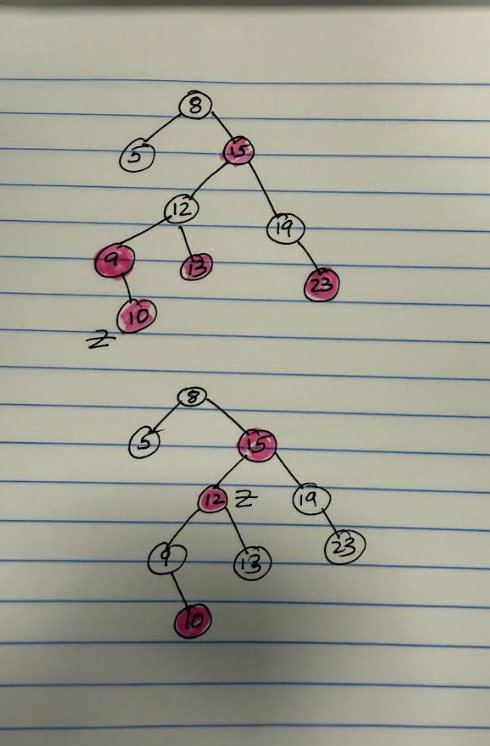 8
5 15
12 19
9 13 23
10
Z
8
5 15
12 Z 19
9 13 23
10